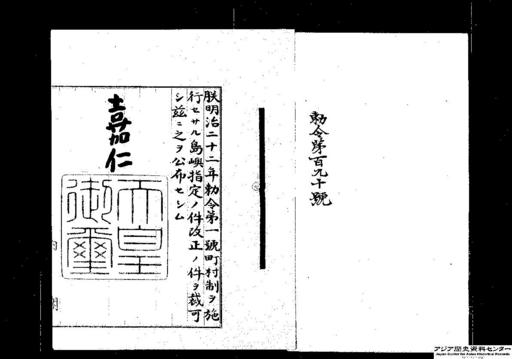 勅令第百九十號
朕明治二十二年勅令第一號町村制ヲ施
行セサル島嶼指定ノ件改正ノ件ヲ裁可
シ玆ニ之ヲ公布セシム
嘉仁
天皇
御璽
アジア歴史資料センター
Japan Center for Asian Historical Records